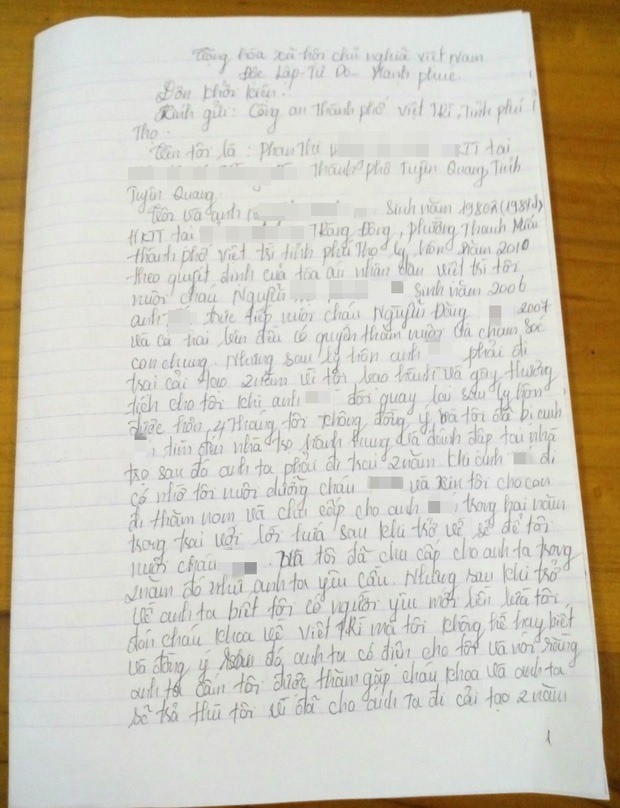 Cộng hòa xã hội chủ nghĩa Việt Nam
Độc Lập - Tự Do - Hạnh phúc.
Đơn khởi kiện.
Kính gửi: Công an Thành phố Việt Trì, Tỉnh phú
Thọ.
Tên tôi là: Phan Thị KTT tại
Thành phố Tuyên Quang, Tỉnh
Tuyên Quang.
Tôi và anh Sinh năm
HKTT tại Trằng Đông, phường Thanh Miếu
thành phố việt trì tỉnh phú Thọ ly hôn năm 2010
theo quyết định của tòa án nhân dân việt trì tôi
nuôi cháu Nguyễn Sinh năm 2006
anh trực tiếp nuôi cháu Nguyễn Đông 2007
và cả hai bên đều có quyền thăm nuôi và chăm sóc
con chung. Nhưng sau ly hôn anh phải đi
trại cải tạo 2 năm vì tội bạo hành và gây thương
tích cho tôi khi anh đòi quay lại sau ly hôn
được hơn 4 tháng tôi không đồng ý và tôi đã bị anh
, tìm đến nhà trọ hành hung đánh đập tại nhà
trọ sau đó anh ta phải đi trại 2 năm. khi anh đi
có nhờ tôi nuôi dưỡng cháu và xin tôi cho con
đi thăm nom và chu cấp cho anh trong hai năm
trong trại với lời hứa sau khi trở về sẽ để tôi
nuôi cháu . Và tôi đã chu cấp cho anh ta trong
2 năm đó như anh ta yêu cầu. Nhưng sau khi trở
về anh ta biết tôi có người yêu mới liền lừa tôi,
đón cháu khoa về Việt Trì mà tôi không hề hay biết
và đồng ý sau đó anh ta có điện cho tôi và nói rằng
anh ta cấm tôi được thăm gặp cháu khoa và anh ta
sẽ trả thù tôi vì đã cho anh ta đi cải tạo 2 năm
1